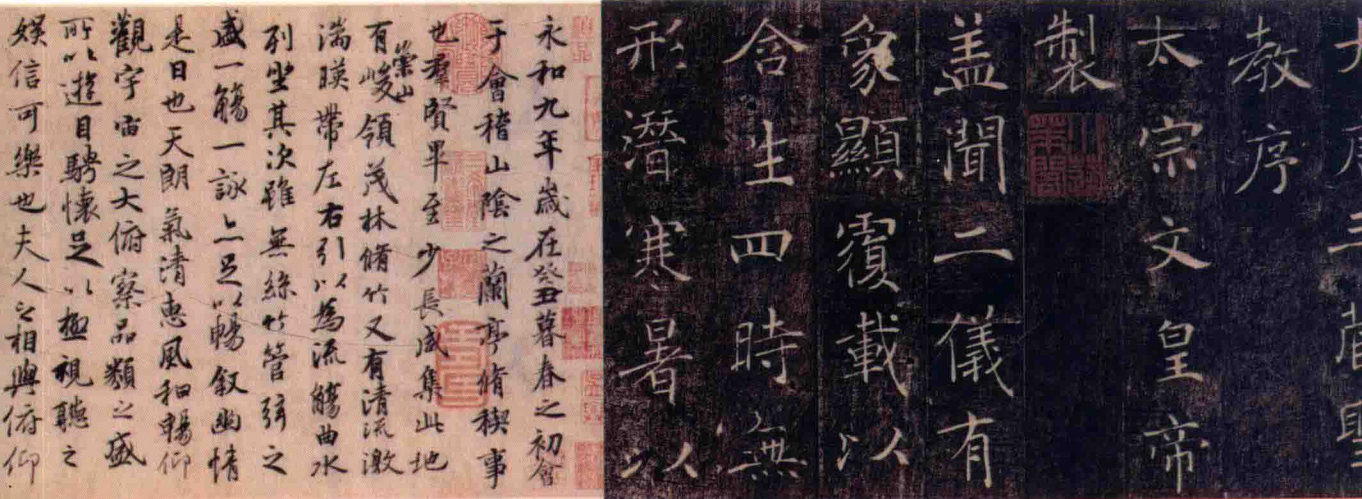 大唐三藏聖
教序
太宗文皇帝
製
盖聞二儀有
象顯覆載以
含生四時無
形潛寒暑以
永和九年歲在癸丑暮春之初會
于會稽山陰之蘭亭脩稧事
也羣賢畢至少長咸集此地
有崇山峻領茂林脩竹又有清流激
湍暎帶左右引以為流觴曲水
列坐其次雖無絲竹管弦之
盛一觴一詠亦足以暢叙幽情
是日也天朗氣清惠風和暢仰
觀宇宙之大俯察品類之盛
所以遊目騁懷足以極視聽之
娛信可樂也夫人之相與俯仰